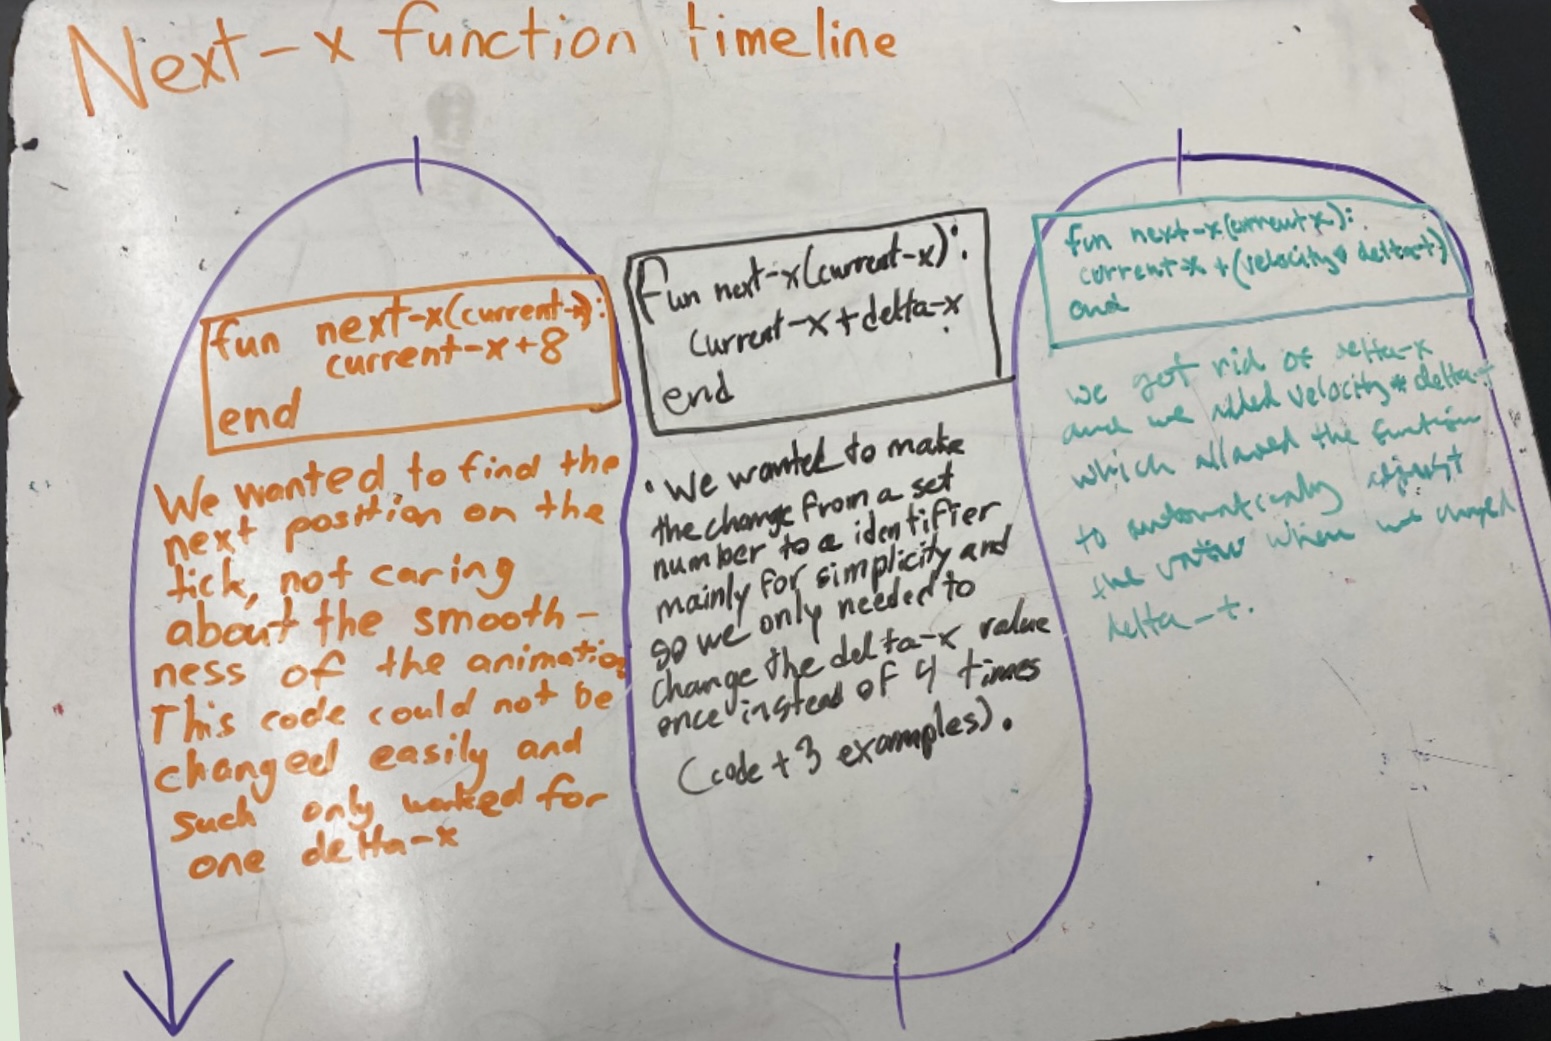 Next-x function timeline
fun next-x(current-x):
current-x+8
end
We wanted to find the
next position on the
tick, not caring
about the smooth-
ness of the animation
This code could not be
changed easily and
such only worked for
one delta-x
fun next-x(current-x):
current-x+delta-x
end
• We wanted to make
the change from a set
number to a identifier
mainly for simplicity and
so we only needed to
change the delta-x value
once instead of 4 times
(code + 3 examples).
fun next-x(current-x):
current-x + (velocity * delta-t)
end
we got rid of delta-x
and we added velocity * delta-t
which allowed the function
to automatically adjust
the when we changed
delta-t.